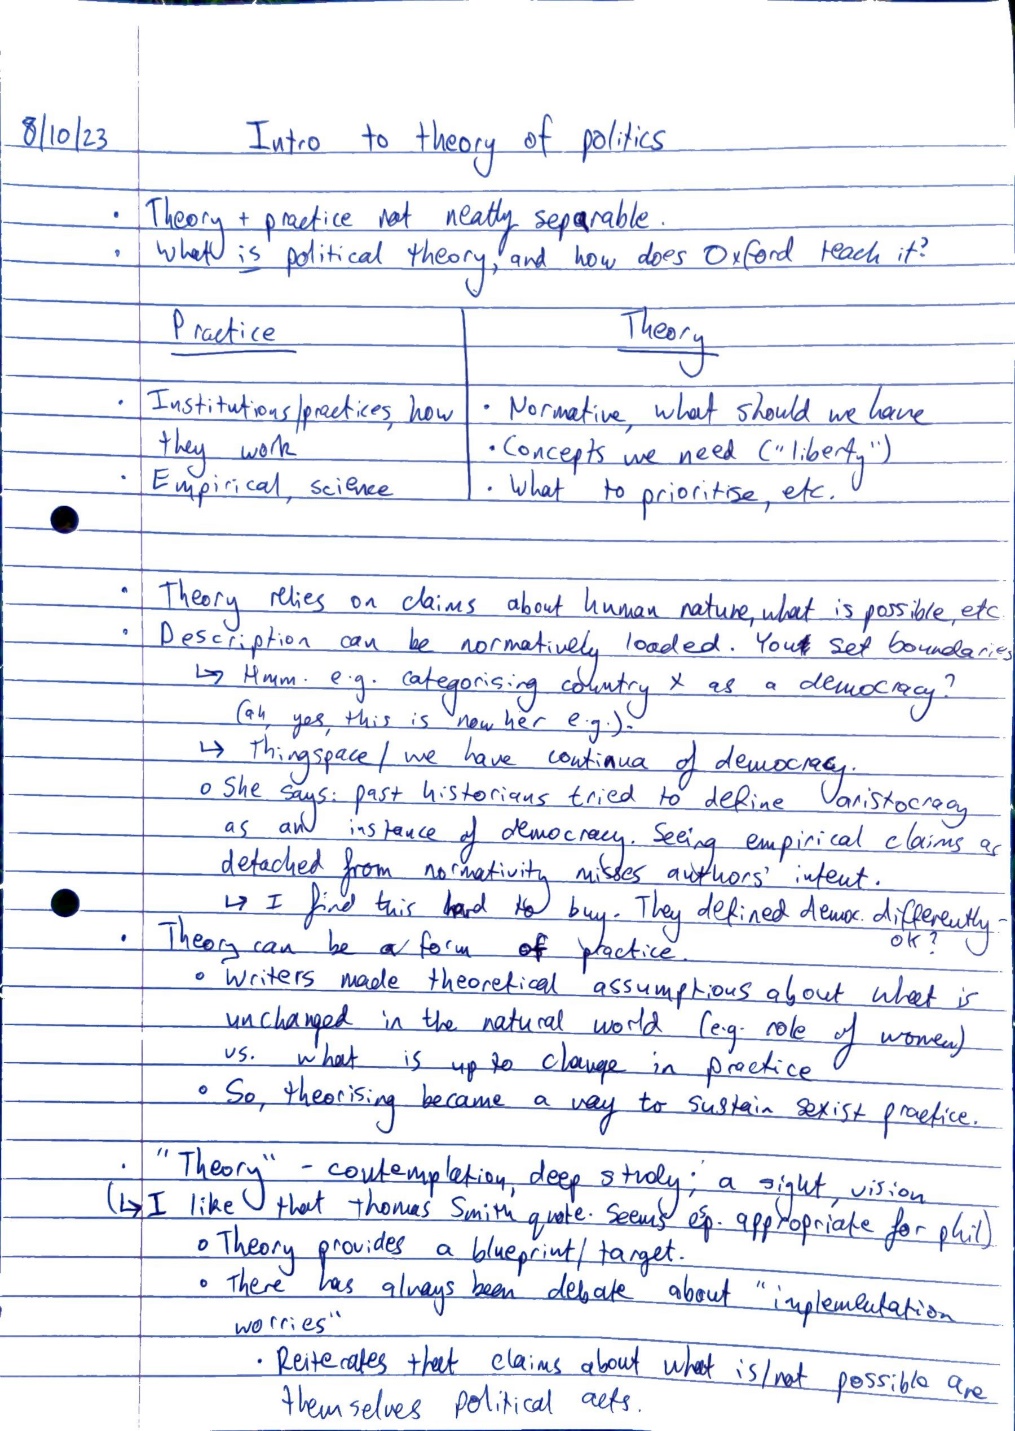 8/10/23 Intro to theory of politics
· Theory + practice not neatly separable.
· What is political theory, and how does Oxford teach it?
Practice
· Institutions/practices, how
they work
· Empirical, science
Theory
· Normative, what should we have
· Concepts we need ("liberty")
· What to prioritise, etc.
· Theory relies on claims about human nature, what is possible, etc
· Description can be normatively loaded. You set boundaries
↳ Hmm. e.g. categorising country X as a democracy?
(ah, yes, this is now her e.g.).
↳ Thingspace / we have continua of democracy.
o She says: past historians tried to define aristocracy
as an instance of democracy. Seeing empirical claims as
detached from normativity misses authors' intent.
↳ I find this hard to buy. They defined democ. differently -
OK?
· Theory can be a form of practice.
o Writers made theoretical assumptions about what is
unchanged in the natural world (e.g. role of women)
vs. what is up to change in practice
o So, theorising became a way to sustain sexist practice.
· "Theory" - contemplation, deep study; a sight, vision
(↳ I like that Thomas Smith quote. Seems esp. appropriate for phil)
o Theory provides a blueprint / target.
o There has always been debate about "implementation
worries"
· Reiterates that claims about what is/not possible are
themselves political acts.